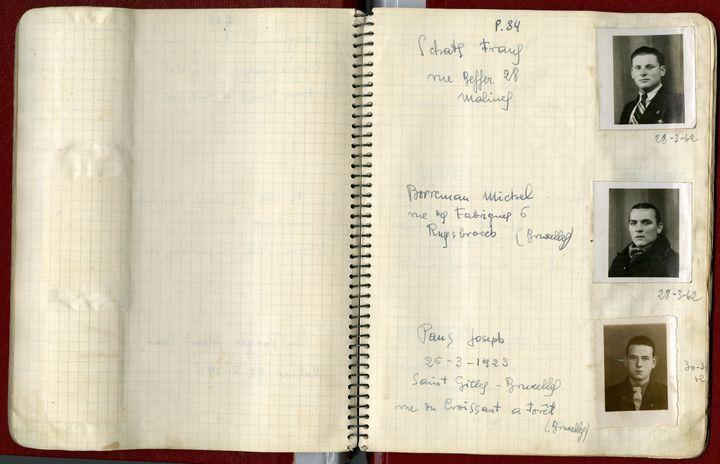 P. 34
Schats Frans
rue Beffer 28
Malines
28-3-42
Borreman Michel
rue des Fabriques 6
Ruysbroeck (Bruxelles)
28-3-42
Paus Joseph
26-3-1923
Saint Gilles - Bruxelles
rue du Croissant a Forêt
(Bruxelles)
30-3-
42